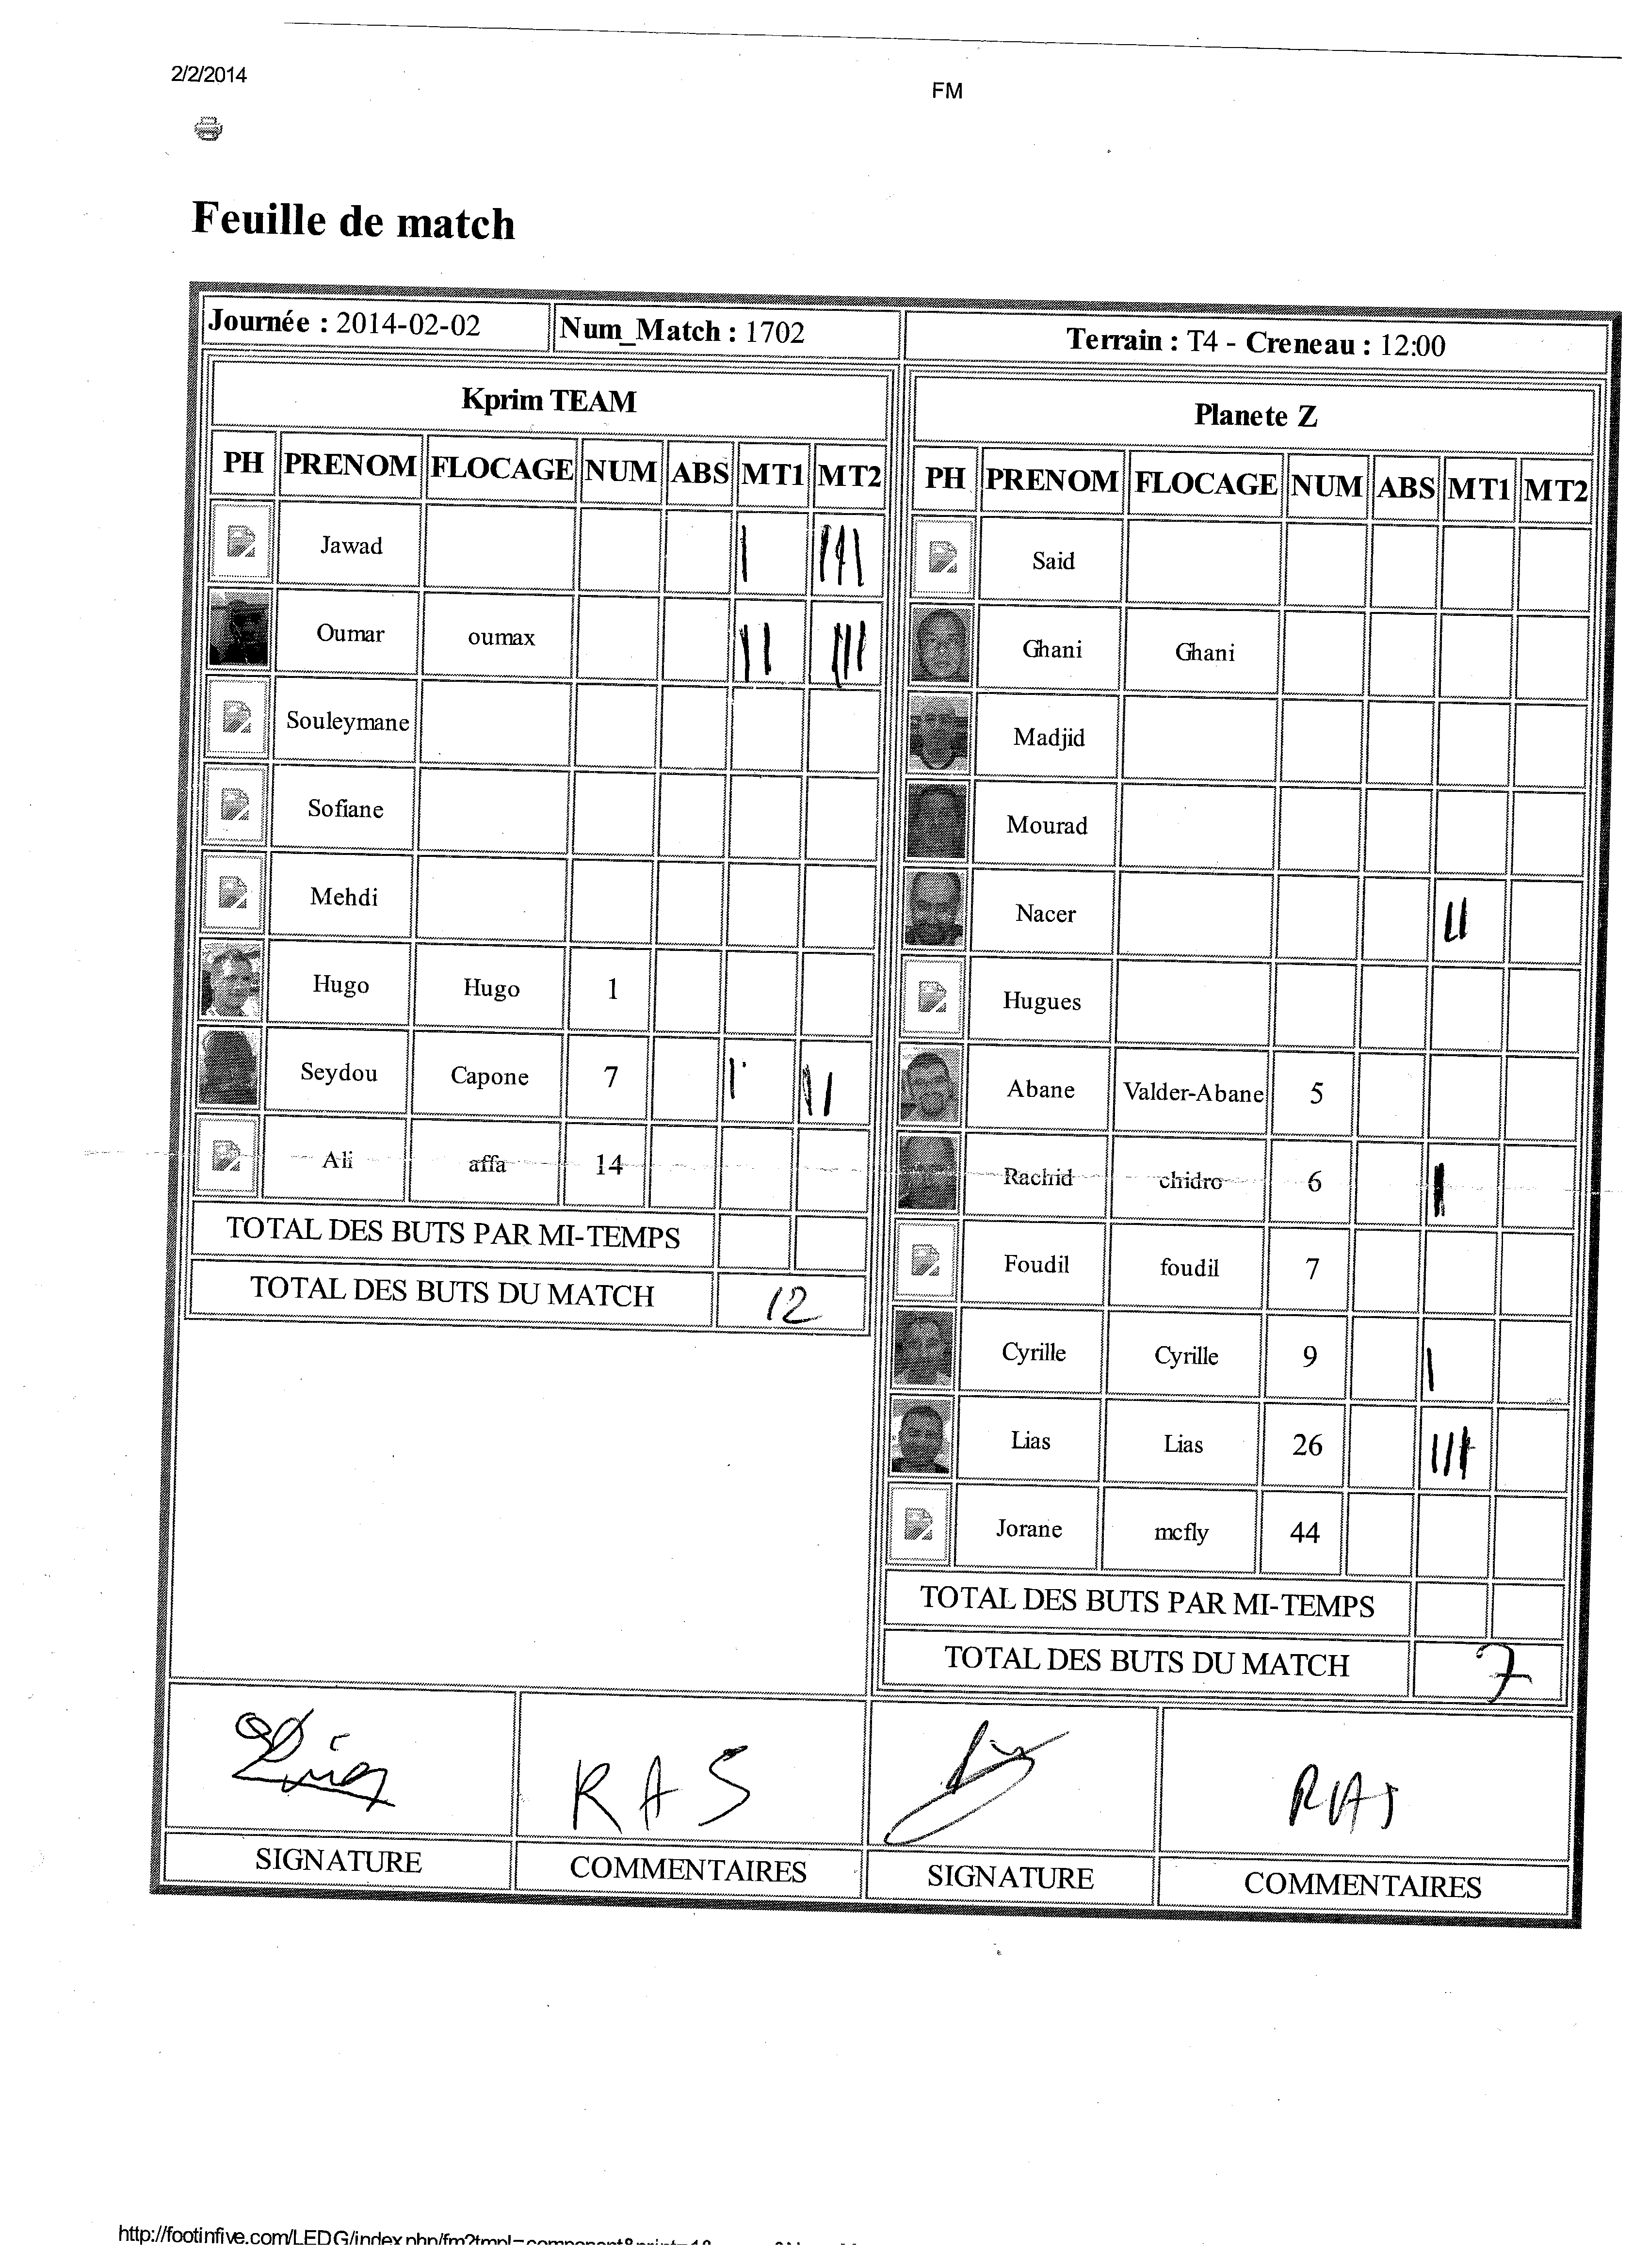 2/2/2014
FM
Feuille de match
Journée : 2014-02-02 Num_Match : 1702 Terrain : T4 - Creneau : 12:00
Kprim TEAM
PH PRENOM FLOCAGE NUM ABS MT1 MT2
Jawad | |||
Oumar oumax || |||
Souleymane
Sofiane
Mehdi
Hugo Hugo 1
Seydou Capone 7 | ||
Ali affa 14
TOTAL DES BUTS PAR MI-TEMPS
TOTAL DES BUTS DU MATCH 12
Planete Z
PH PRENOM FLOCAGE NUM ABS MT1 MT2
Said
Ghani Ghani
Madjid
Mourad
Nacer ||
Hugues
Abane Valder-Abane 5
Rachid chidro 6 |
Foudil foudil 7
Cyrille Cyrille 9 |
Lias Lias 26 |||
Jorane mcfly 44
TOTAL DES BUTS PAR MI-TEMPS
TOTAL DES BUTS DU MATCH 7
RAS RAS
SIGNATURE COMMENTAIRES SIGNATURE COMMENTAIRES
http://footinfive.com/LEDG/index.php/fm?tmpl=component&print=1&